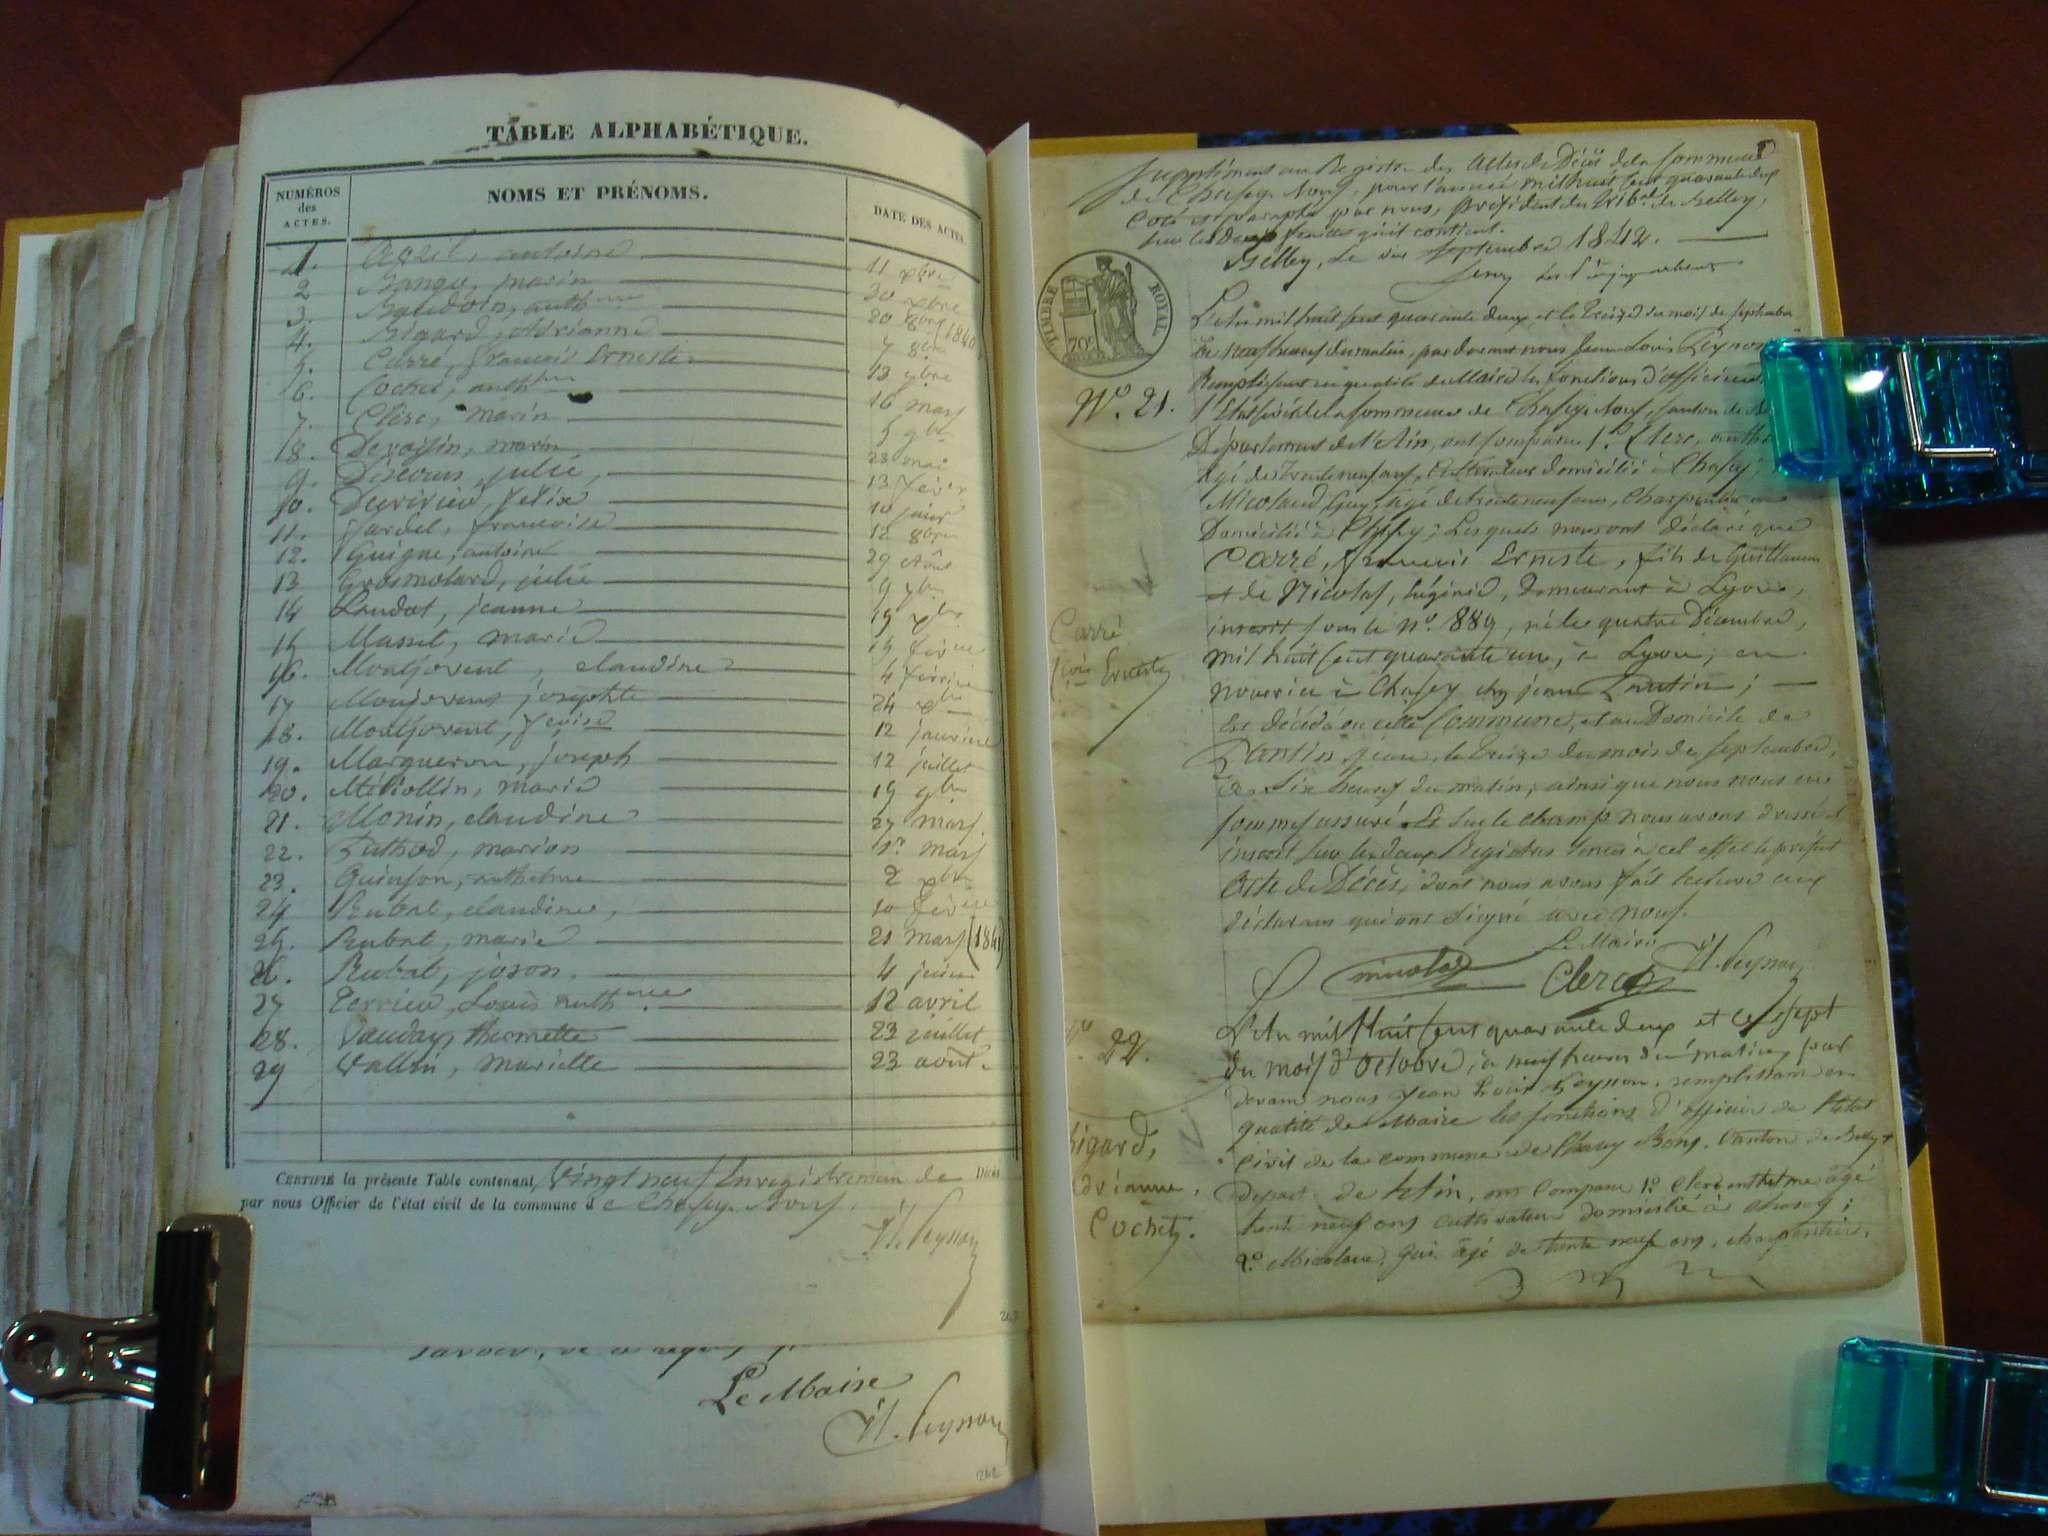 TABLE ALPHABÉTIQUE.
NUMÉROS des ACTES.
NOMS ET PRÉNOMS.
DATE DES ACTES.
1. antoine 11 xbre
2 marin 30 xbre
3. Baudvin, anthme 20 8bre (1840)
4. Bigard, Adrianne 7 8bre
5. Carré, francois Erneste 13 7bre
6. Cochet, anthme 16 mars
7. Clerc, marin 5 9bre
8. Devassin, marin 23 mai
9. julie, 13 fevier
10. Decrivieu, felix 10 janr
11. Jardel, francoise 12 8bre
12. Guigue, antoine 29 Août
13 Grosmolard, julie 9 7bre
14 Laudat, jeanne 19 xbre
15 Masset, marie 14 février
16. Montjovent, claudine 4 février
17 Monjovent josephte 24 xbre
18. Montjovent, 12 janvier
19. Margueron, joseph 12 juillet
20. Métiollin, marie 19 9bre
21. Monin, claudine 27 mars.
22. marion 1er mars
23. Quinson, anthelme 2 xbre
24 Rubat, claudine, 10 fevrier
25. Rubat, marie 21 mars (1841)
26. Rubat, 4 juin
27 Terrieu, Louis anthme. 12 avril
28. Vauday, thermette 23 juillet
29 Vallin, mariette 23 août.
CERTIFIÉ la présente Table contenant Vingt neuf Enregistremen de Décès
par nous Officier de l'état civil de la commune d e Chasey-Bons.
J.L. Peysson
263
Le Maire
J.L. Peysson
262
Supplément au Registre des Actes de Décès de la Commune
de Chasey-Bons, pour l'année mil huit cent quarante deux
Coté et paraphé par nous, président du Tribal de Belley,
sur les deux feuilles qu'il contient.
Belley, le dix septembre 1842.
TIMBRE ROYAL
70c
L'An mil huit cent quarante deux et le treize du mois de septembre
à neuf heures du matin, par devant nous Jean Louis Peysson
Remplissant en qualité de Maire les fonctions d'officier de
No. 21.
l'Etat civil de la Commune de Chasey-Bons, Canton de
Département de l'Ain, ont comparu 1o. Clerc, anthe
âgé de trente neuf ans, Cultivateur domicilié à Chasey;
Micoland, Guy, âgé de trente neuf ans, Charpentier
Domicilié à Chasey; Lesquels nous ont déclaré que
Carré, francois Erneste, fils de Guillaume
et de Nicolas, Eugénie, Demeurant à Lyon,
inscrit sous le No. 889, né le quatre Décembre,
Carré
fçois Erneste
mil huit cent quarante un, à Lyon; en
nourrice à Chasey chez jean Pantin;
Est décédé en cette Commune, et au Domicile de
Pantin, jean, le treize du mois de septembre,
à six heures du matin; ainsi que nous nous en
sommes assuré. Et sur le champ nous avons dressé et
inscrit sur les deux Registres tenus à cet effet le présent
Acte de Décès, dont nous avons fait lecture aux
déclarans qui ont signé avec nous.
Le Maire
Clerc J.L. Peysson
L'An mil Huit Cent quarante deux et le sept
22.
du mois d'Octobre, à neuf heures du matin, par
devant nous Jean Louis Peysson, remplissant en
qualité de Maire les fonctions d'officier de l'état
civil de la commune de Chasey Bons, Canton de Belley
Bigard,
Adrianne,
Cochet.
Depart. de l'Ain, ont comparu 1o. Clerc anthelme âgé
trente neuf ans cultivateur domicilié à Chasey;
2o. Micoland, Gui âgé de trente neuf ans, charpentier,